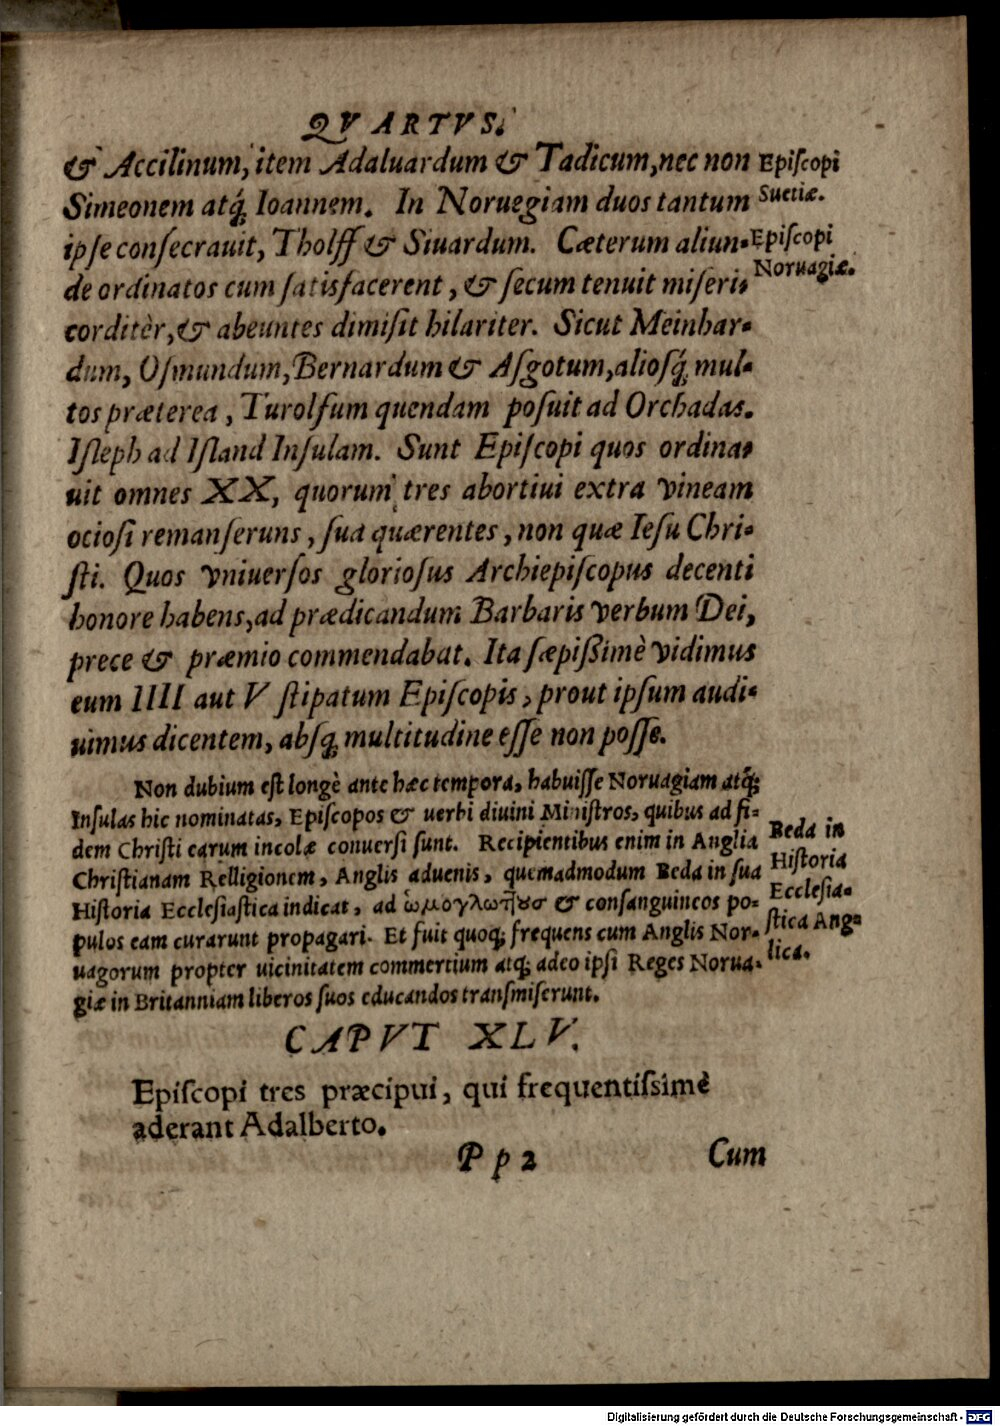 QVARTVS.
& Accilinum, item Adaluardum & Tadicum, nec non
Simeonem atq́; Ioannem. In Noruegiam duos tantum
ipse consecrauit, Tholff & Siuardum. Cæterum aliun-
de ordinatos cum satisfacerent, & secum tenuit miseri-
corditèr, & abeuntes dimisit hilariter. Sicut Meinhar-
dum, Osmundum, Bernardum & Asgotum, aliosq́; mul-
tos præterea, Turolfum quendam posuit ad Orchadas.
Isleph ad Island Insulam. Sunt Episcopi quos ordina-
uit omnes XX, quorum tres abortiui extra vineam
ociosi remanseruns, sua quærentes, non quæ Iesu Chri-
sti. Quos vniuersos gloriosus Archiepiscopus decenti
honore habens, ad prædicandum Barbaris verbum Dei,
prece & præmio commendabat. Ita sæpißimè vidimus
eum IIII aut V stipatum Episcopis, prout ipsum audi-
uimus dicentem, absq; multitudine esse non posse.
Episcopi
Suetiæ.
Episcopi
Noruagiæ.
Non dubium est longè ante hæc tempora, habuisse Noruagiam atq́;
Insulas hic nominatas, Episcopos & uerbi diuini Ministros, quibus ad fi-
dem Christi earum incolæ conuersi sunt. Recipientibus enim in Anglia
Christianam Relligionem, Anglis aduenis, quemadmodum Beda in sua
Historia Ecclesiastica indicat, ad & consanguineos po-
pulos eam curarunt propagari. Et fuit quoq; frequens cum Anglis Nor-
uagorum propter uicinitatem commertium atq; adeo ipsi Reges Norua-
giæ in Britanniam liberos suos educandos transmiserunt.
Beda in
Historia
Ecclesia-
stica Ang-
lica.
CAPVT XLV.
Episcopi tres præcipui, qui frequentissimè
aderant Adalberto.
Pp 2
Cum
Digitalisierung gefördert durch die Deutsche Forschungsgemeinschaft - DFG